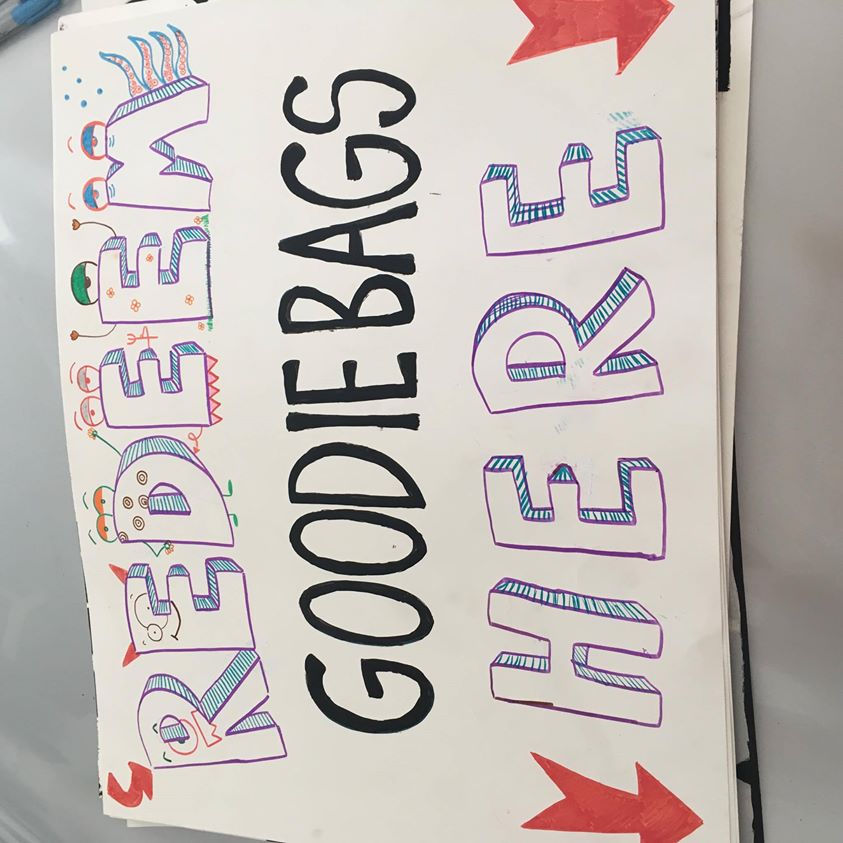 REDEEM
GOODIE BAGS
HERE